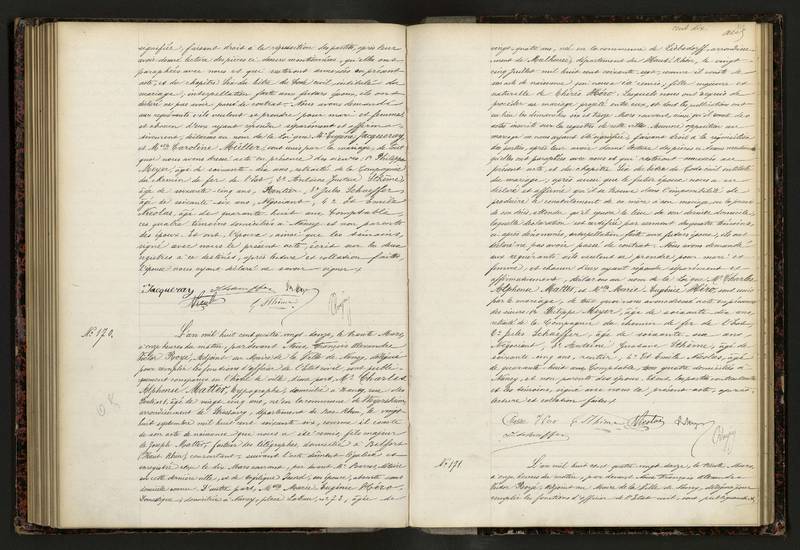 signifier, faisant droit à la réquisition des parties, après leur
avoir donné lecture des pièces ci-dessus mentionnées, qu'elles ont
paraphées avec nous et qui resteront annexées au présent
acte, et du chapitre Six du titre du Code civil intitulé du
mariage, interpellation faite aux futurs époux, ils ont
déclaré ne pas avoir passé de contrat. Nous avons demandé
aux requérants s'ils veulent se prendre pour mari et femme,
et chacun d'eux ayant répondu séparément et affirma-
tivement, déclarons au nom de la loi, que Mr Eugène Jacqueray
et Mlle Caroline Miller, sont unis par le mariage, de tout
quoi nous avons dressé acte en présence des sieurs 1° Philippe
Meyer, âgé de soixante-dix ans, retraité de la Compagnie
du chemin de fer de l'Est, 2° Antoine Gustave Sthème,
âgé de soixante-cinq ans, Rentier, 3° Jules Schaeffer,
âgé de soixante-six ans, Négociant, & 4° Emile
Nicolas, âgé de quarante-huit ans Comptable,
ces quatre témoins domiciliés à Nancy et non parents
des époux. Et ont, l'époux, ainsi que les témoins,
signé avec nous le présent acte, écrit sur les deux
registres à ce destinés, après lecture et collation faites,
l'épouse nous ayant déclaré ne savoir signer.
Jacqueray
N° 170.
L'an mil huit cent quatre-vingt-douze, le trente Mars,
à onze heures du matin, par devant Nous, François Alexandre
Victor Roye, Adjoint au Maire de la Ville de Nancy, délégué
pour remplir les fonctions d'officier de l'Etat civil, sont publi-
quement comparus en l'hôtel de ville, d'une part, Mr Charles
Alphonse Mattos, typographe, domicilié à Nancy, rue des
âgé de vingt-cinq ans, né en la commune de
arrondissement de Strasbourg, département du Bas-Rhin, le vingt-
huit septembre mil huit cent soixante-six, comme il conste
de son acte de naissance que nous a été remis, fils majeur
de Joseph Mattos, facteur des télégraphes, domicilié à Belfort
(Haut-Rhin) consentant, suivant l'acte dûment légalisé et
enregistré reçu le dix Mars courant, par devant Me
en cette dernière ville, et de Angélique son épouse, absente sans
domicile connu. D'autre part, Mlle Marie Eugénie Héro,
domestique, domiciliée à Nancy, place n° 73, âgée de
cent dix
vingt-quatre ans, née en la commune de arrondisse-
ment de Mulhouse, département du Haut-Rhin, le vingt-
cinq Juillet mil huit cent soixante-sept, comme il conste de
son acte de naissance qui nous a été remis, fille majeure et
naturelle de Héro. Lesquels nous ont requis de
procéder au mariage projeté entre eux, et dont les publications ont
eu lieu les dimanches six et treize Mars courant, ainsi qu'il conste des
actes inscrits sur les registres de cette ville, aucune opposition au
mariage ne nous ayant été signifiée, faisant droit à la réquisition
des parties, après leur avoir donné lecture des pièces ci-dessus mention-
qu'elles ont paraphées avec nous et qui resteront annexées au
présent acte, et du chapitre Six du titre du Code civil intitulé
du mariage, après aussi que la future épouse nous a
déclaré et affirmé qu'il se trouve dans l'impossibilité de
produire le consentement de sa mère à son mariage, ou l'acte
de son décès, attendu qu'il ignore le lieu de son dernier domicile,
laquelle déclaration est certifiée par serment des quatre témoins
ci-après dénommés, interpellation faite aux futurs époux, ils ont
déclaré ne pas avoir passé de contrat. Nous avons demandé
aux requérants s'ils veulent se prendre pour mari et
femme, et chacun d'eux ayant répondu séparément et
affirmativement, déclarons au nom de la loi, que Mr Charles
Alphonse Mattos, et Mlle Marie Eugénie Héro, sont unis
par le mariage, de tout quoi nous avons dressé acte en présence
des sieurs 1° Philippe Meyer, âgé de soixante-dix ans,
retraité de la Compagnie du chemin de fer de l'Est,
2° Jules Schaeffer, âgé de soixante-six ans,
Négociant, 3° Antoine Gustave Sthème, âgé de
soixante-cinq ans, rentier, & 4° Emile Nicolas, âgé
de quarante-huit ans Comptable, ces quatre domiciliés à
Nancy, et non parents des époux. Et ont les parties contractantes
et les témoins, signé avec nous le présent acte, après
lecture et collation faites.
N° 171.
L'an mil huit cent quatre-vingt-douze, le trente Mars,
à onze heures du matin, par devant Nous François Alexandre
Victor Roye, Adjoint au Maire de la Ville de Nancy, délégué pour
remplir les fonctions d'officier de l'Etat civil, sont publiquement